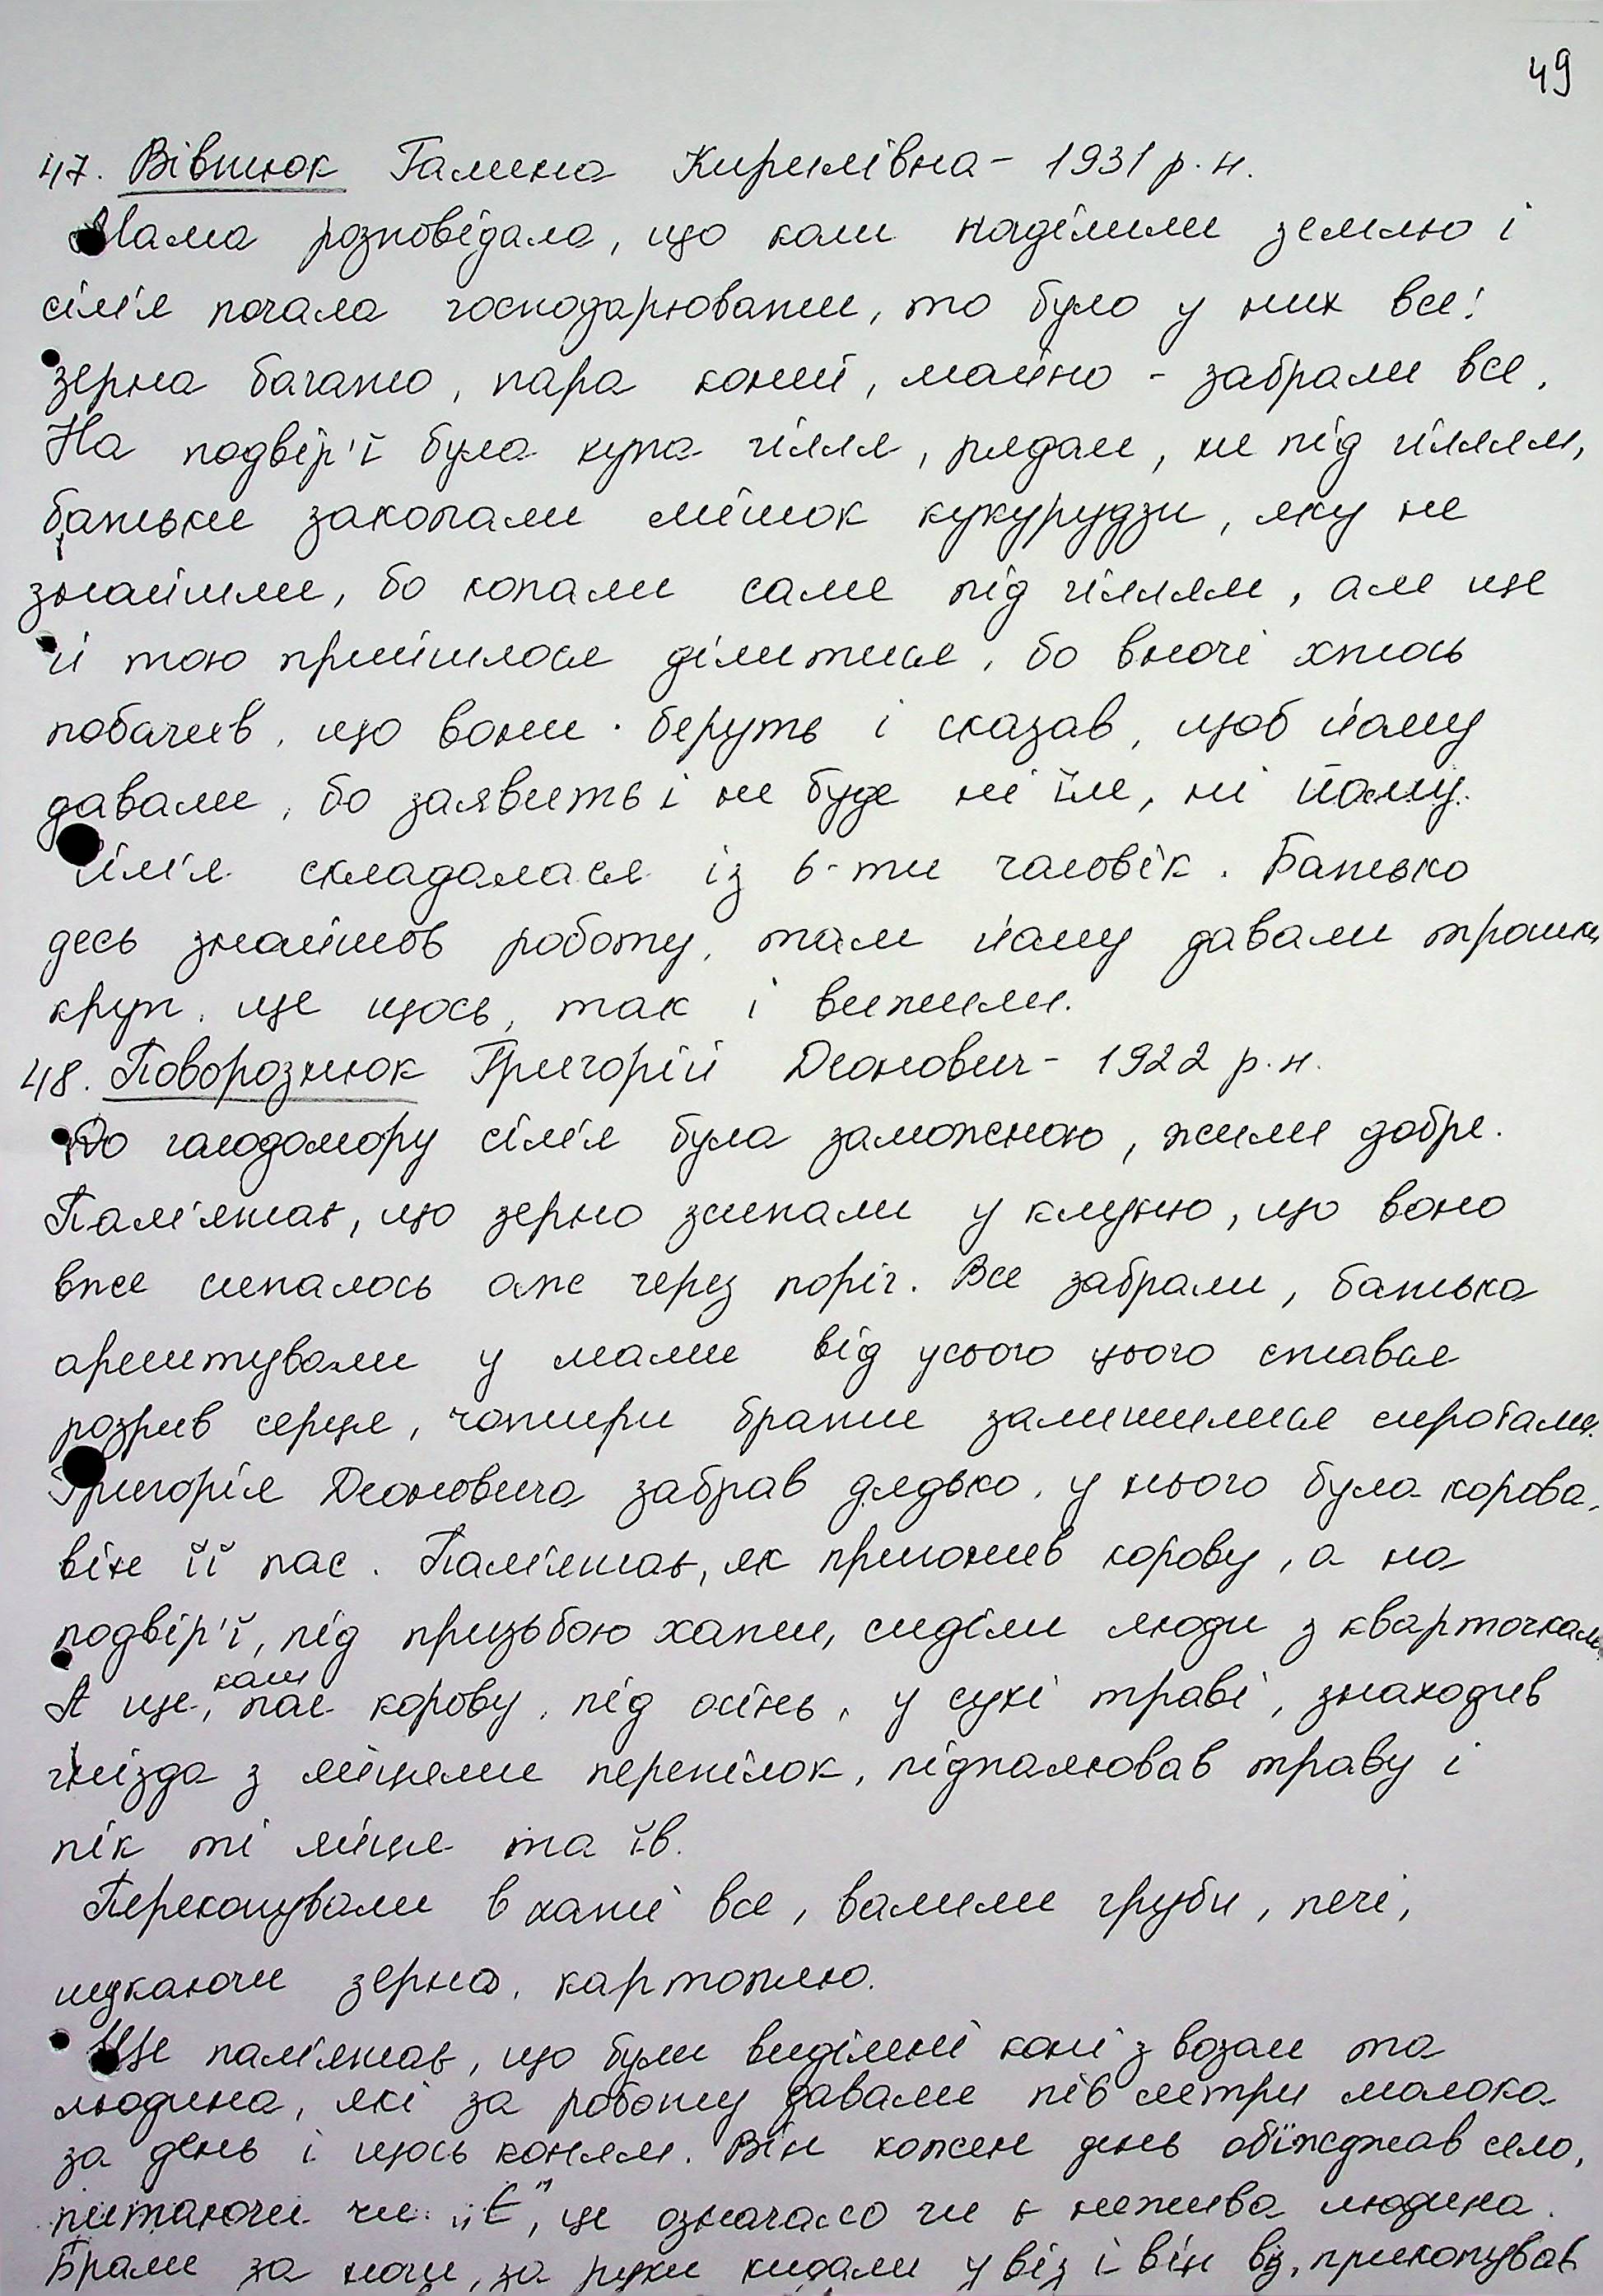 49
47. Вівтюк Галина Кирилівна - 1931 р.н.
Мама розповідала, що коли наділили землю і
сім'я почала господарювати, то було у них все:
зерна багато, пара коней, майно - забрали все.
На подвір'ї була купа гілля, рядом, не під гіллям,
батьки закопали мішок кукурудзи, яку не
знайшли, бо копали саме під гіллям, але ще
й тою прийшлося ділитися, бо вночі хтось
побачив, що вони беруть і сказав, щоб йому
давали, бо заявить і не буде ні їм, ні йому.
Сім'я складалася із 6-ти чоловік. Батько
десь знайшов роботу, там йому давали трошки
круп, ще щось, так і вижили.
48. Поворознюк Григорій Леонович - 1922 р.н.
До голодомору сім'я була заможною, жили добре.
Пам'ятає, що зерно зсипали у клуню, що воно
вже сипалось аж через поріг. Все забрали, батька
арештували у мами від усього цього стався
розрив серця, чотири брати залишилися сиротами.
Григорія Леоновича забрав дядько, у нього була корова,
він її пас. Пам'ятає, як пригонив корову, а на
подвір'ї, під призьбою хати, сиділи люди з кварточками.
А ще, коли пас корову, під осінь, у сухі траві, знаходив
гнізда з яйцями перепілок, підпалював траву і
пік ті яйця та їв.
Перекопували в хаті все, валили груби, печі,
шукаючи зерно, картоплю.
Ще пам'ятає, що були виділені коні з возом та
людина, які за роботу давали пів літри молока
за день і щось коням. Він кожен день об'їжджав село,
питаючи чи „Є", це означало чи є нежива людина.
Брали за ноги, за руки кидали у віз і він віз, прикопував